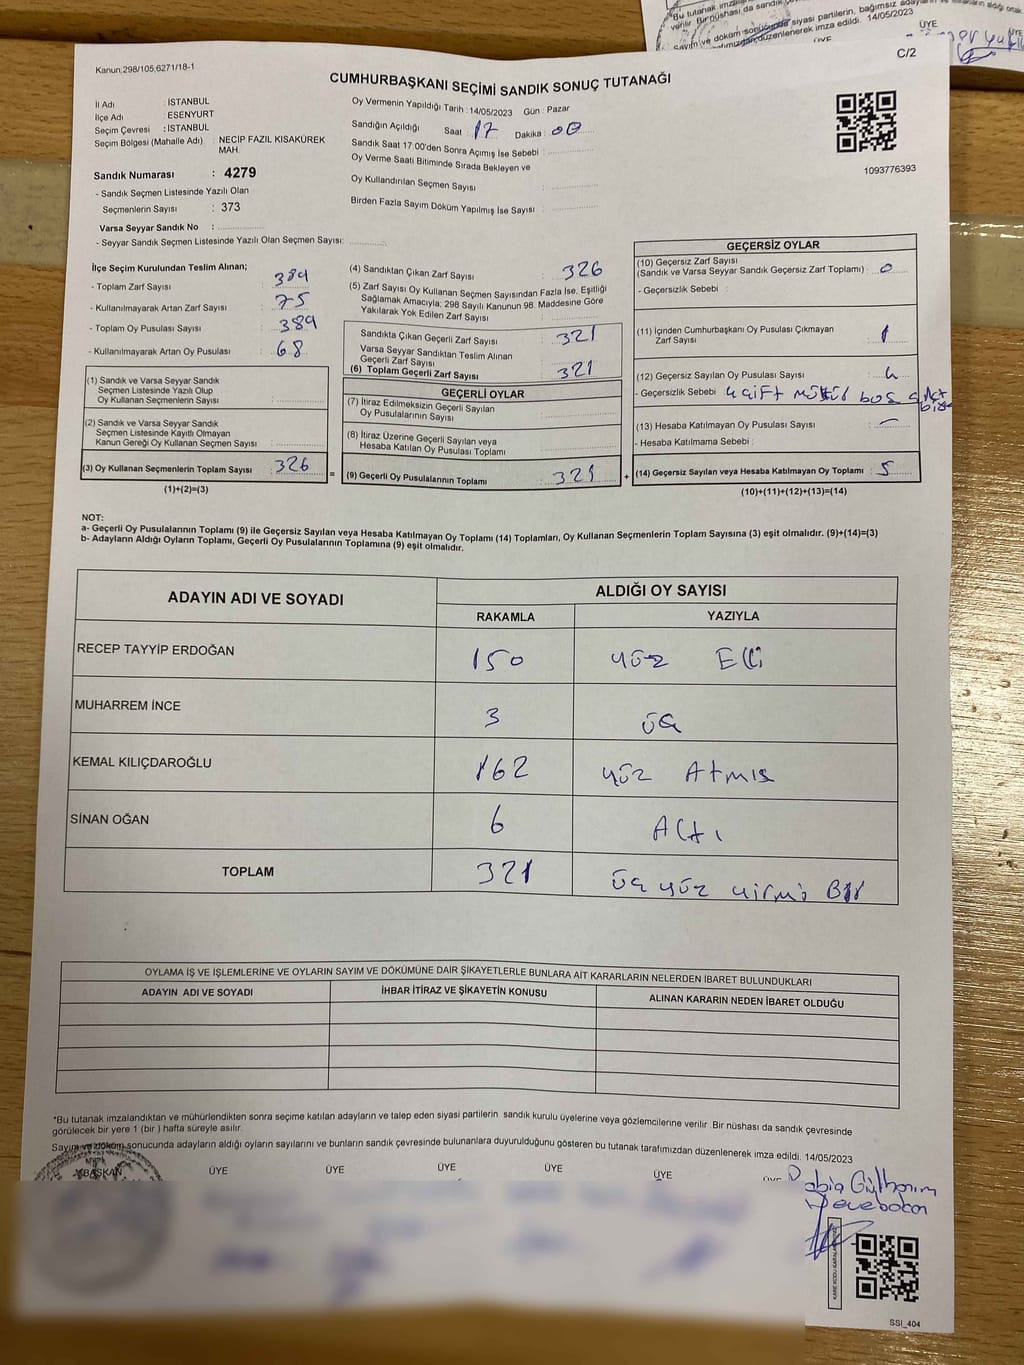 Bu tutanak imza
verilir. Bir nüshası da sandık
siyasi partilerin, bağımsız
düzenlenerek imza edildi. 14/05/2023
ÜYE
ÜYE
C/2
Kanun;298/105,6271/18-1
CUMHURBAŞKANI SEÇİMİ SANDIK SONUÇ TUTANAĞI
İl Adı : İSTANBUL
İlçe Adı : ESENYURT
Seçim Çevresi : İSTANBUL
Seçim Bölgesi (Mahalle Adı) : NECİP FAZIL KISAKÜREK
MAH.
Sandık Numarası : 4279
- Sandık Seçmen Listesinde Yazılı Olan
Seçmenlerin Sayısı : 373
Varsa Seyyar Sandık No :
- Seyyar Sandık Seçmen Listesinde Yazılı Olan Seçmen Sayısı:
Oy Vermenin Yapıldığı Tarih : 14/05/2023 Gün : Pazar
Sandığın Açıldığı Saat 17 Dakika : 00
Sandık Saat 17:00'den Sonra Açımış İse Sebebi :
Oy Verme Saati Bitiminde Sırada Bekleyen ve
Oy Kullandırılan Seçmen Sayısı :
Birden Fazla Sayım Döküm Yapılmış İse Sayısı :
1093776393
İlçe Seçim Kurulundan Teslim Alınan;
- Toplam Zarf Sayısı : 389
- Kullanılmayarak Artan Zarf Sayısı : 75
- Toplam Oy Pusulası Sayısı : 389
- Kullanılmayarak Artan Oy Pusulası : 68
(1) Sandık ve Varsa Seyyar Sandık
Seçmen Listesinde Yazılı Olup
Oy Kullanan Seçmenlerin Sayısı :
(2) Sandık ve Varsa Seyyar Sandık
Seçmen Listesinde Kayıtlı Olmayan
Kanun Gereği Oy Kullanan Seçmen Sayısı :
(3) Oy Kullanan Seçmenlerin Toplam Sayısı : 326
(1)+(2)=(3)
=
(4) Sandıktan Çıkan Zarf Sayısı : 326
(5) Zarf Sayısı Oy Kullanan Seçmen Sayısından Fazla İse, Eşitliği
Sağlamak Amacıyla; 298 Sayılı Kanunun 98. Maddesine Göre
Yakılarak Yok Edilen Zarf Sayısı :
Sandıkta Çıkan Geçerli Zarf Sayısı : 321
Varsa Seyyar Sandıktan Teslim Alınan
Geçerli Zarf Sayısı :
(6) Toplam Geçerli Zarf Sayısı : 321
GEÇERLİ OYLAR
(7) İtiraz Edilmeksizin Geçerli Sayılan
Oy Pusulalarının Sayısı :
(8) İtiraz Üzerine Geçerli Sayılan veya
Hesaba Katılan Oy Pusulası Toplamı :
(9) Geçerli Oy Pusulalarının Toplamı : 321
+
GEÇERSİZ OYLAR
(10) Geçersiz Zarf Sayısı
(Sandık ve Varsa Seyyar Sandık Geçersiz Zarf Toplamı) : 0
- Geçersizlik Sebebi :
(11) İçinden Cumhurbaşkanı Oy Pusulası Çıkmayan
Zarf Sayısı : 1
(12) Geçersiz Sayılan Oy Pusulası Sayısı : 4
- Geçersizlik Sebebi : 4 çift mühür boş
(13) Hesaba Katılmayan Oy Pusulası Sayısı : —
- Hesaba Katılmama Sebebi :
(14) Geçersiz Sayılan veya Hesaba Katılmayan Oy Toplamı : 5
(10)+(11)+(12)+(13)=(14)
NOT:
a- Geçerli Oy Pusulalarının Toplamı (9) ile Geçersiz Sayılan veya Hesaba Katılmayan Oy Toplamı (14) Toplamları, Oy Kullanan Seçmenlerin Toplam Sayısına (3) eşit olmalıdır. (9)+(14)=(3)
b- Adayların Aldığı Oyların Toplamı, Geçerli Oy Pusulalarının Toplamına (9) eşit olmalıdır.
ADAYIN ADI VE SOYADI ALDIĞI OY SAYISI
RAKAMLA YAZIYLA
RECEP TAYYİP ERDOĞAN 150 yüz Elli
MUHARREM İNCE 3 üç
KEMAL KILIÇDAROĞLU 162 yüz Atmış
SİNAN OĞAN 6 Altı
TOPLAM 321 üç yüz yirmi Bir
OYLAMA İŞ VE İŞLEMLERİNE VE OYLARIN SAYIM VE DÖKÜMÜNE DAİR ŞİKAYETLERLE BUNLARA AİT KARARLARIN NELERDEN İBARET BULUNDUKLARI
ADAYIN ADI VE SOYADI İHBAR İTİRAZ VE ŞİKAYETİN KONUSU ALINAN KARARIN NEDEN İBARET OLDUĞU
*Bu tutanak imzalandıktan ve mühürlendikten sonra seçime katılan adayların ve talep eden siyasi partilerin sandık kurulu üyelerine veya gözlemcilerine verilir. Bir nüshası da sandık çevresinde
görülecek bir yere 1 (bir ) hafta süreyle asılır.
Sayım ve döküm sonucunda adayların aldığı oyların sayılarını ve bunların sandık çevresinde bulunanlara duyurulduğunu gösteren bu tutanak tarafımızdan düzenlenerek imza edildi. 14/05/2023
BAŞKAN ÜYE ÜYE ÜYE ÜYE ÜYE
Rabia Gülhanım
Devebacan
SSI_404